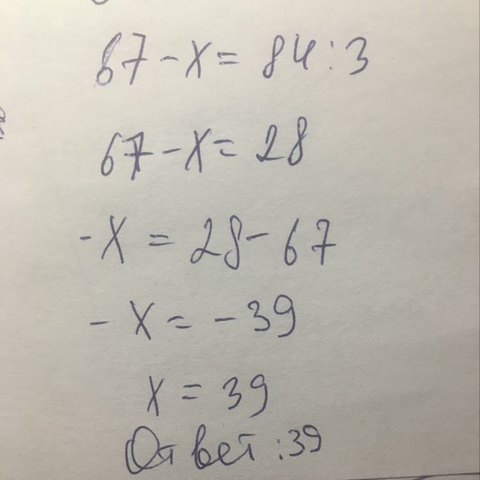 67 - x = 84 : 3
67 - x = 28
- x = 28 - 67
- x = - 39
x = 39
Ответ : 39